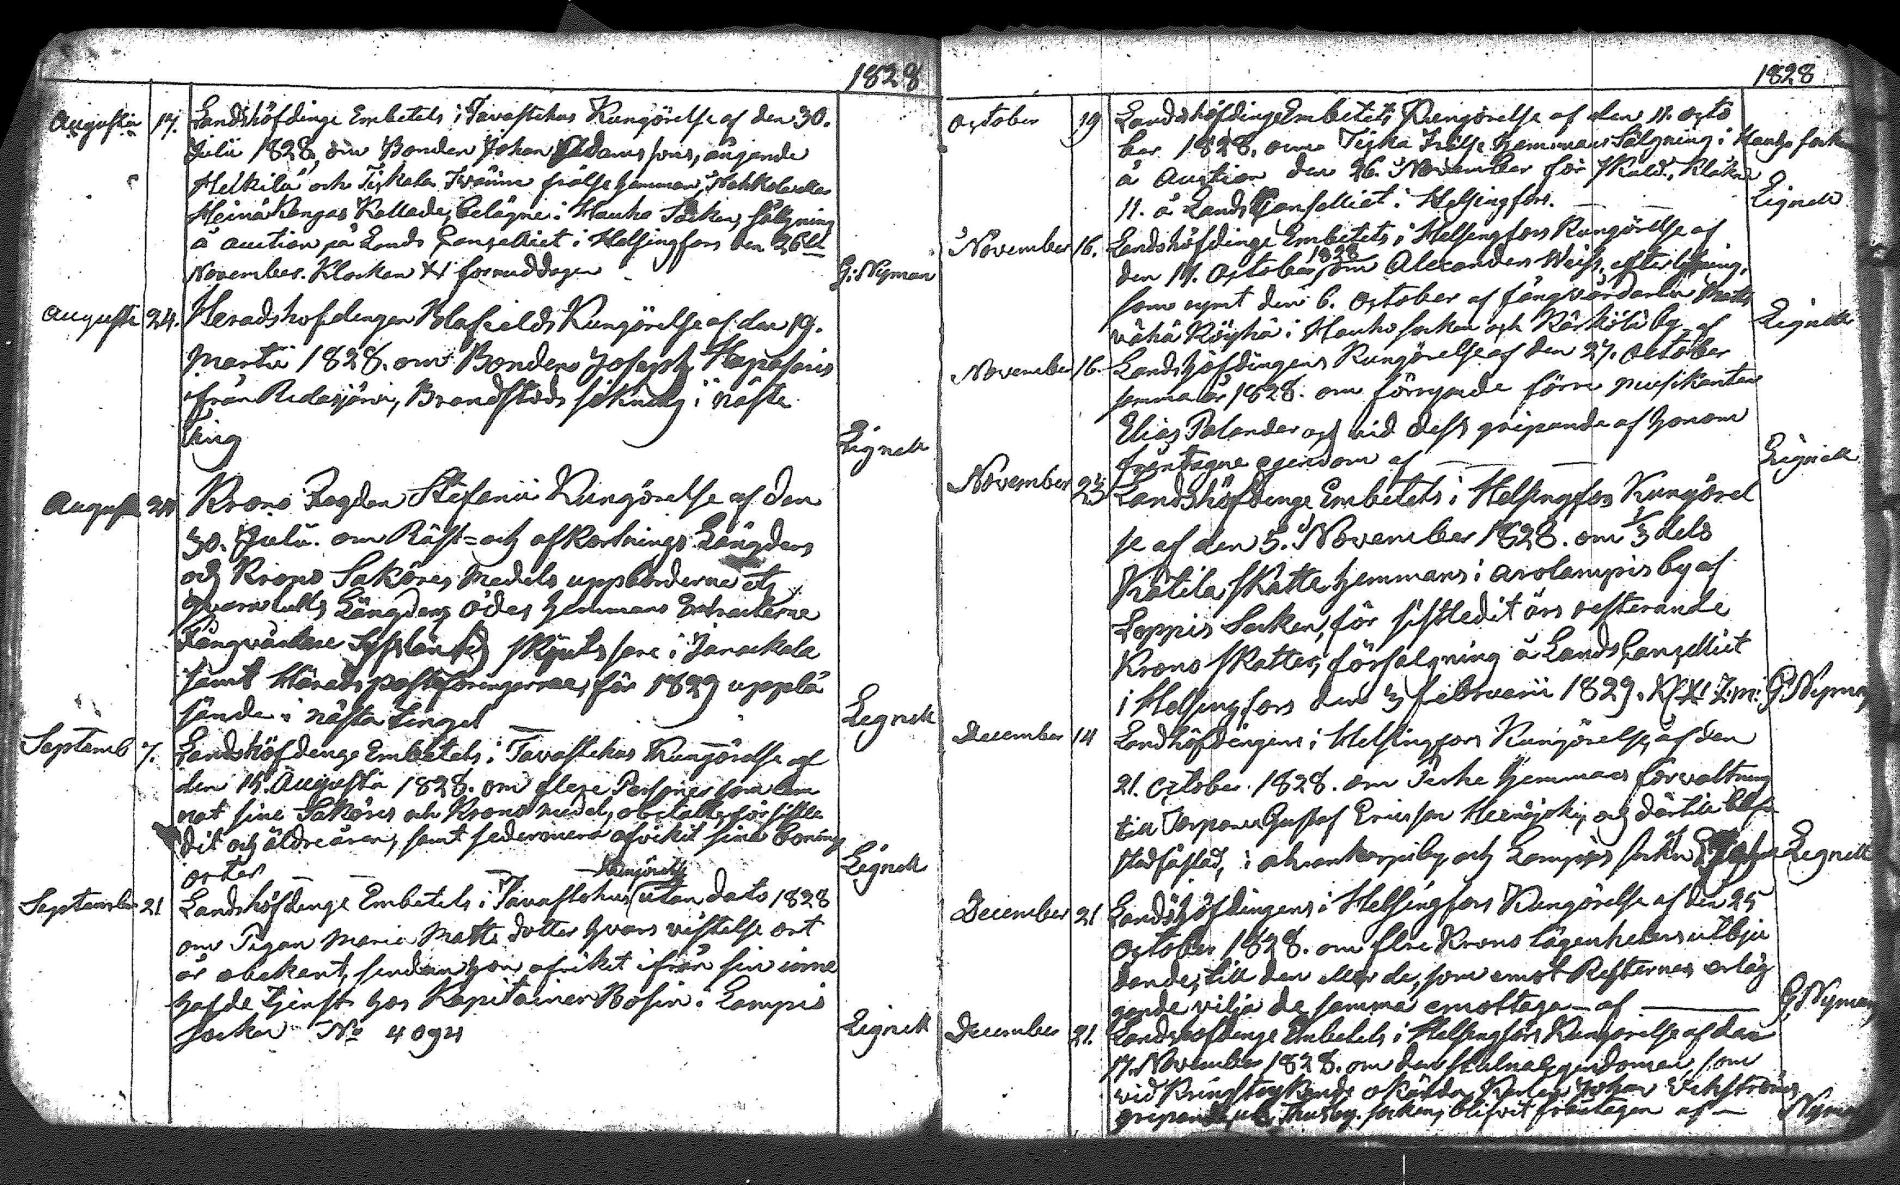 1828
Augusti 17. Landshöfdinge Embetets i Tavastehus Kungörelse af den 30.
Julii 1828, om Bonden Johan Adams sons, ägande
Heikilä och Tyskala Iväninn frälse hemman, Nahkola
Heinäkangas Kallade, belägne i Hauho Socken, sälgning
å auction på Lands Cancelliet i Helsingfors den 26te
November. Klockan XI formiddagen G: Nyman
Augusti 24. Heradshofdingen Kungörelse af den 19.
Martii 1828. om Bonden Joseph
ifrån Redasjärvi, Brandstods sökning i näste
Ting Lignell
Augusti 24 Krono Fogden Stefanii Kungörelse af den
30. Julii. om Räst- och afkortnings Längdens
och Krono Saköres Medels uppbörderne
Längdens ödes hemmans Extracterne
Fångvårdare skjuts fare i Janackala
samt Härads postföringarnas, för 1829 upplä
sande i nästa Tinget Lignell
Septemb 7. Landshöfdinge Embetets i Tavastehus Kungörelse af
den 15. Augusti 1828. om flere Personer som läm
nat sine Saköres och Krono medel, obetalte för sistle
dit och äldre åren, samt sedermera afvikit sine boning
orter Lignell
Kungörelse
September 21 Landshöfdinge Embetets i Tavastehus utan dato 1828
om Pigan Maria Matts dotter hvars vistelse ort
är obekant, sedan hon afvikit ifrån sin inne
hafde tjenst hos Kapitainen Bosin i Lampis
socken No 4094 Lignell
1828
October 19 Landshöfdinge Embetets Kungörelse af den 11. Octo
ber 1828. om Tyska Frälse hemmans Sälgning i Hauho sock
å Auction den 26. November för Skuld, Klåkan
11. å Lands Cancelliet i Helsingfors. Lignell
November 16. Landshöfdinge Embetets i Helsingfors Kungörelse af
1828
den 11. October om Alexander Weiss, efterlysning,
som rymt den 6. October af fångvårdaren Matts
vähä Köyhä i Hauho socken och Kårkölä by af Lignell
November 16. Landshöfdingens Kungörelse af den 27. October
samma år 1828. om förrymde förre musikanten
Elias Polander och vid dess gripande af honom
fråntagne egendom af Lignell
November 23 Landshöfdinge Embetets i Helsingfors Kungörel
se af den 5. November 1828. om 1/3 dels
Katila Skatte hemmans i by af
Loppis Socken, för sistledit års resterande
Krono Skatter, försälgning å Lands Cancelliet
i Helsingfors den 3 februarii 1829. G Nyman
December 14 Landshöfdingens i Helsingfors Kungörelse af den
21. October 1828. om hemmans förvaltning
till Torparen Gustaf Ericsson och dertill blif
stadfästad, i by och Lampis socken Lignell
December 21 Landshöfdingens i Helsingfors Kungörelse af den 25
October 1828. om flere Krono lägenheters utbju
dande, till den eller de, som emot Resternes erläg
gande vilja de samma emottaga af G, Nyman
December 21. Landshöfdinge Embetets i Helsingfors Kungörelse af den
17. November 1828. om den stulna egendomen, som
vid Kringstrykande okända Karlen Johan
gripande, i Thusby socken, blifvit fråntagen af Nyman